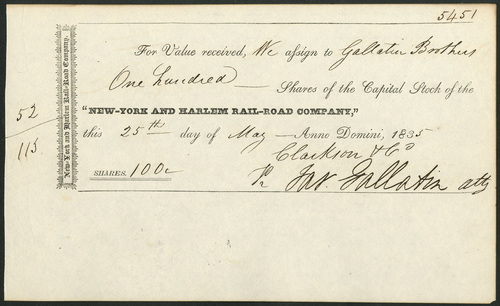 5451
For Value received, We assign to Gallatin Brothers
One hundred Shares of the Capital Stock of the
"NEW-YORK AND HARLEM RAIL-ROAD COMPANY,"
this 25th day of May Anno Domini, 1835
Clarkson & Co
SHARES. 100
Pr Jas. Gallatin atty
New-York and Harlem Rail-Road Company.
52
115